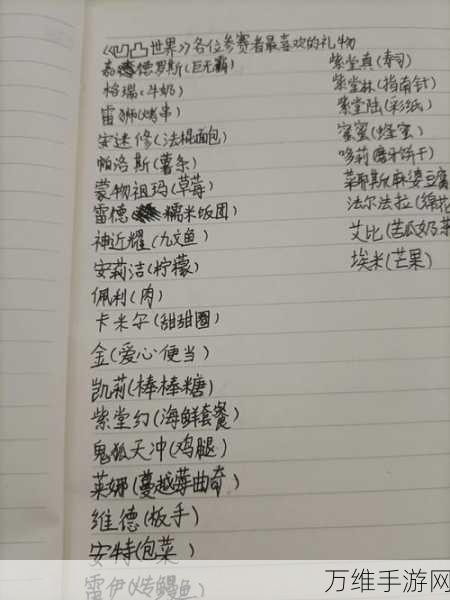 《凹凸世界》各位参赛者最喜欢的礼物
嘉德罗斯(巨无霸)
格瑞(牛奶)
雷狮(烤串)
安迷修(法棍面包)
帕洛斯(薯条)
蒙特祖玛(草莓)
雷德 糯米饭团)
神近耀(九文鱼)
安莉洁(柠檬)
佩利(肉)
卡米尔(甜甜圈)
金(爱心便当)
凯莉(棒棒糖)
紫堂幻(海鲜套餐)
鬼狐天冲(鸡腿)
莱娜(蔓越莓曲奇)
维德(板手)
安特(包菜)
雷伊(烤鳗鱼)
紫堂真(寿司)
紫堂林(指南针)
紫堂陆(彩纸)
蜜(蜂蜜)
哆莉(磨牙饼干)
莱耶斯(麻婆豆腐
法尔法拉(棉花
艾比(苦瓜奶茶
埃米(芒果)
万维手游网